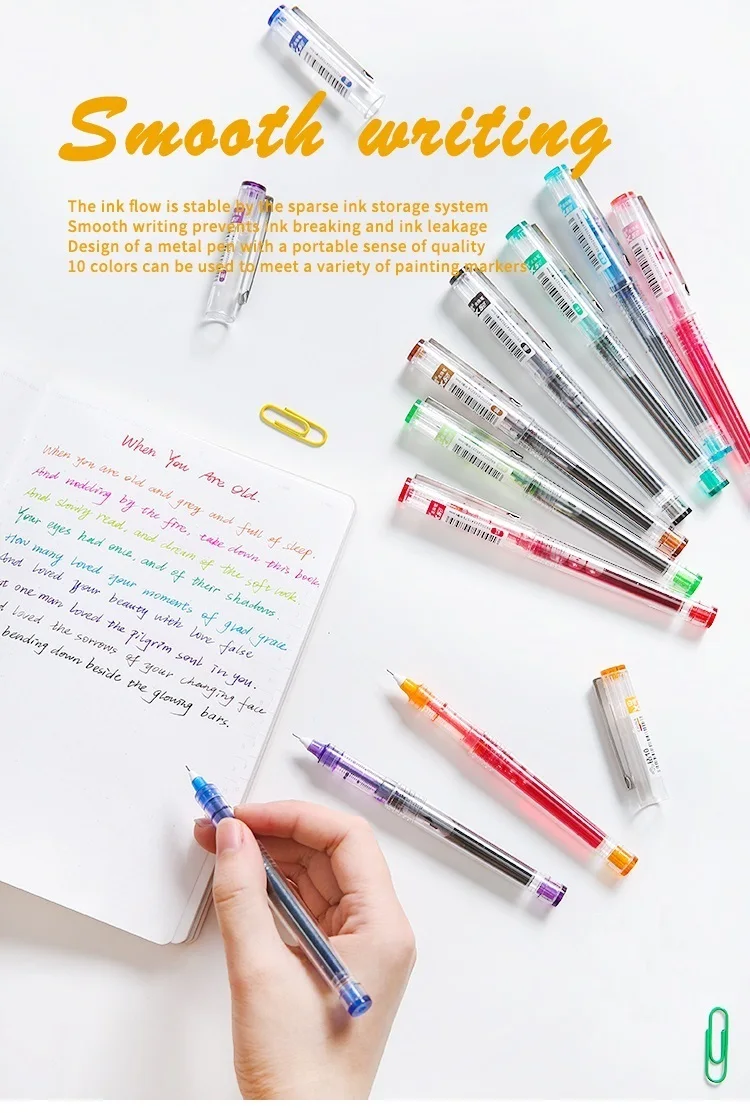 Smooth writing
The ink flow is stable by the sparse ink storage system
Smooth writing prevents ink breaking and ink leakage
Design of a metal pen with a portable sense of quality
10 colors can be used to meet a variety of painting markers
When You Are Old.
When you are old and grey and full of sleep.
And nodding by the fire, take down this book
And slowly read, and dream of the soft look
Your eyes had once, and of their shadows
How many loved your moments of glad grace
And loved your beauty with love false
one man loved the pilgrim soul in you.
loved the sorrows of your changing face
beading down beside the glowing bars.